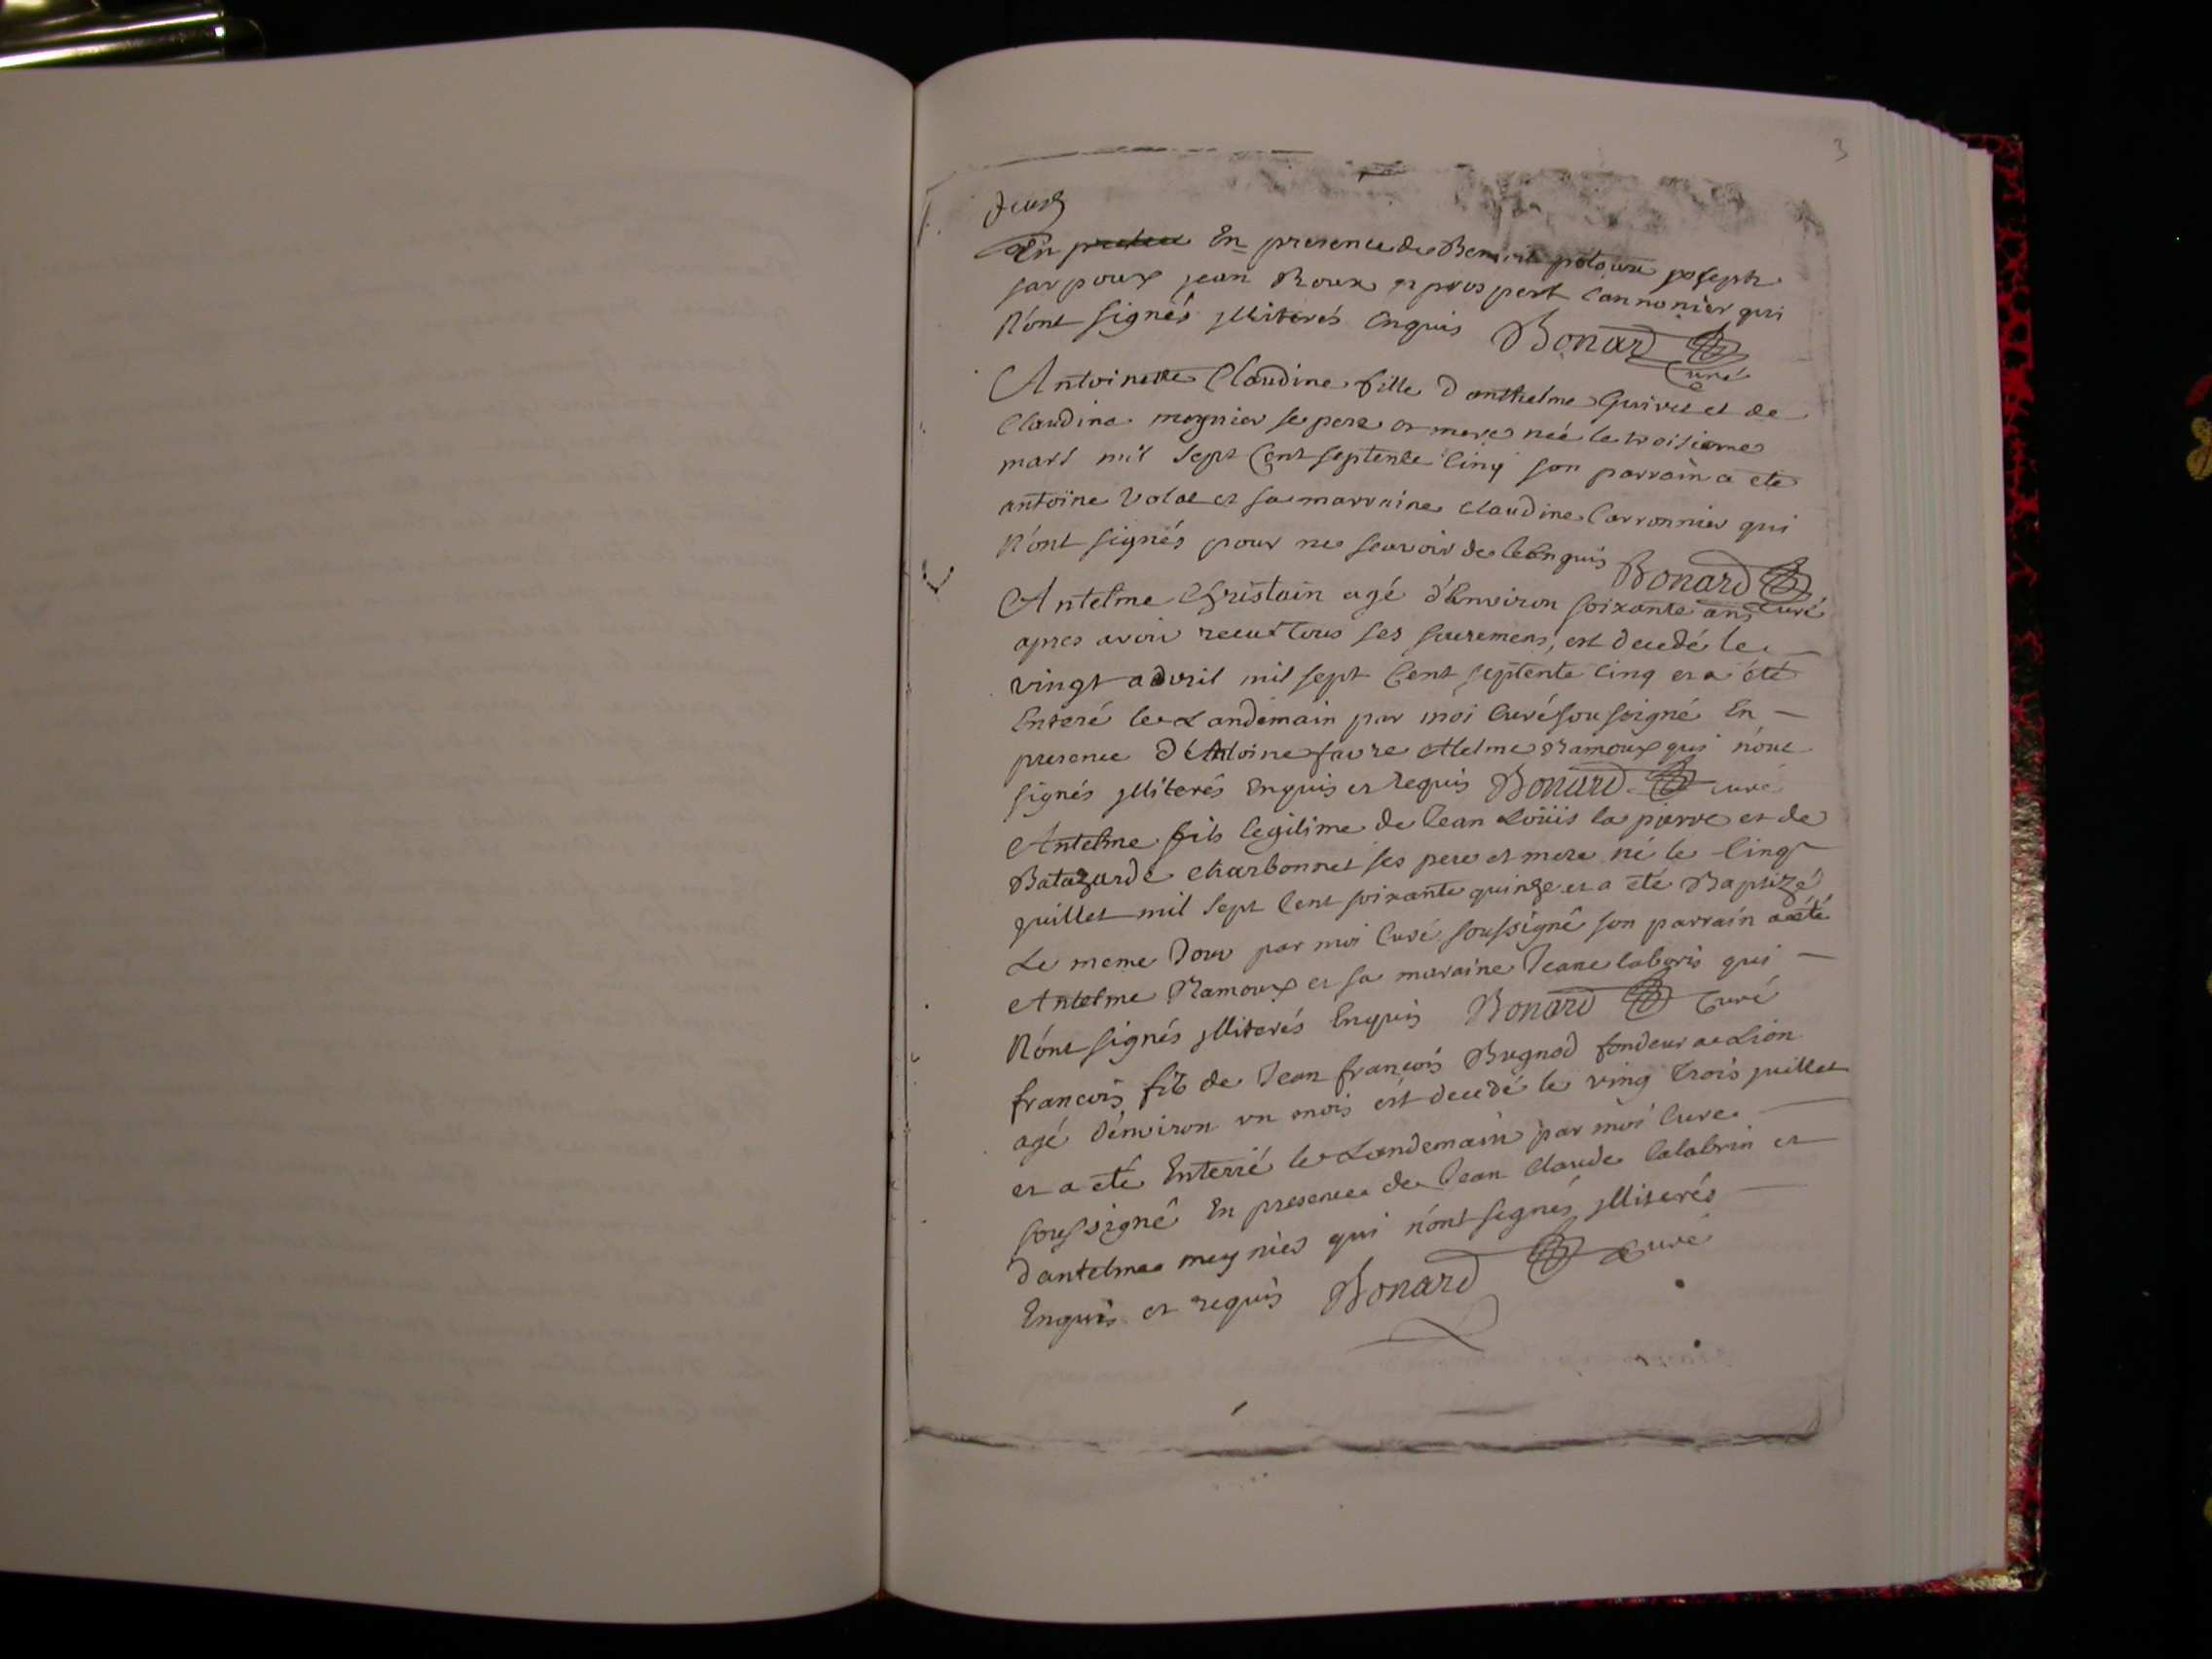 3
deux
En En presence de Benoit joseph
sarpoux jean Roux et prospert Cannonier qui
N'ont signés jlliterés Enquis Bonard
Curé
Antoinette Claudine fille D'anthelme Guivet et de
Claudine meynier se pere et mere née le troisieme
mars mil sept Cent septente Cinq son parrain a ete
antoine Volat et sa marraine claudine Carronnier qui
N'ont signés pour ne scavoir de ce Enquis Bonard
Curé
Antelme Christain agé d'Environ soixante ans
apres avoir recut tous ses sacremens, est decedé le
vingt advril mil sept Cent septente Cinq et a été
Enteré le Landemain par moi Curé sousoigné En
presence d'Antoine favre Atelme Ramoux qui n'ont
signés jlliterés Enquis et requis Bonard curé
Antelme fils legitime de Jean Loüis la pierre et de
Batazarde charbonnet ses pere et mere né le Cinq
juillet mil sept Cent soixante quinze et a été Baptizé
Le meme Jour par moi Curé soussigné son parrain a été
Antelme Ramoux et sa maraine Jeane laboris qui
N'ont signés jlliterés Enquis Bonard Curé
francois fils de Jean francois Bugnod fondeur a Lion
agé d'environ un mois est decedé le ving trois juillet
et a eté Enterré le Landemain par moi Cure
soussigné En presence de Jean Claude Calabrin et
d'antelme meynier qui n'ont segnés jlliterés
Enquis et requis Bonard Curé